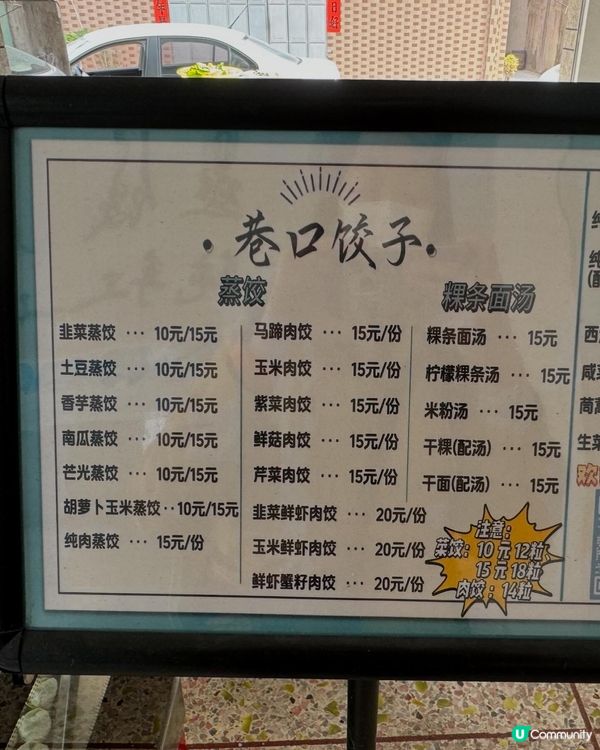 巷口饺子
蒸饺
韭菜蒸饺 ··· 10元/15元
土豆蒸饺 ··· 10元/15元
香芋蒸饺 ··· 10元/15元
南瓜蒸饺 ··· 10元/15元
芒光蒸饺 ··· 10元/15元
胡萝卜玉米蒸饺 ·· 10元/15元
纯肉蒸饺 ··· 15元/份
马蹄肉饺 ··· 15元/份
玉米肉饺 ··· 15元/份
紫菜肉饺 ··· 15元/份
鲜菇肉饺 ··· 15元/份
芹菜肉饺 ··· 15元/份
韭菜鲜虾肉饺 ··· 20元/份
玉米鲜虾肉饺 ··· 20元/份
鲜虾蟹籽肉饺 ··· 20元/份
粿条面汤
粿条面汤 ··· 15元
柠檬粿条汤 ··· 15元
米粉汤 ··· 15元
干粿(配汤) ··· 15元
干面(配汤) ··· 15元
注意：
菜饺：10元12粒
15元18粒
肉饺：14粒
西
咸菜
茼蒿
生菜
欢
U Community